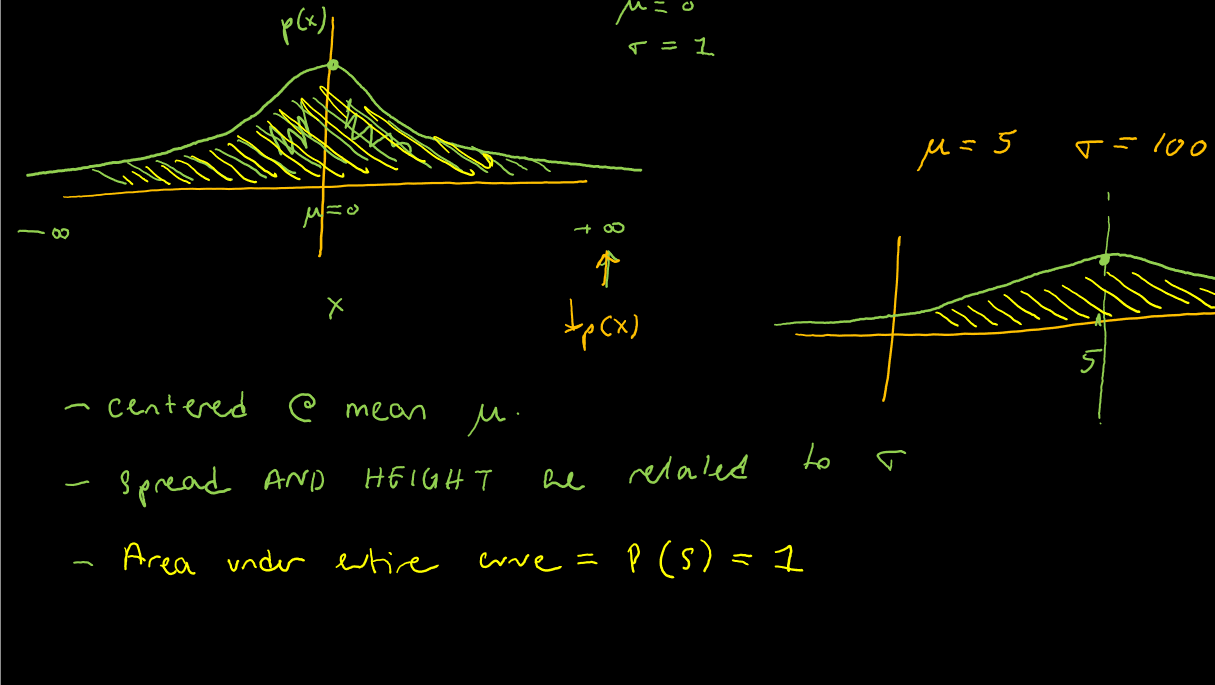 p(x)
μ = 0
σ = 1
μ = 5 σ = 100
μ = 0
− ∞
+ ∞
x
↓ p(x)
5
– centered @ mean μ.
– Spread AND HEIGHT are related to σ
– Area under entire curve = P(S) = 1